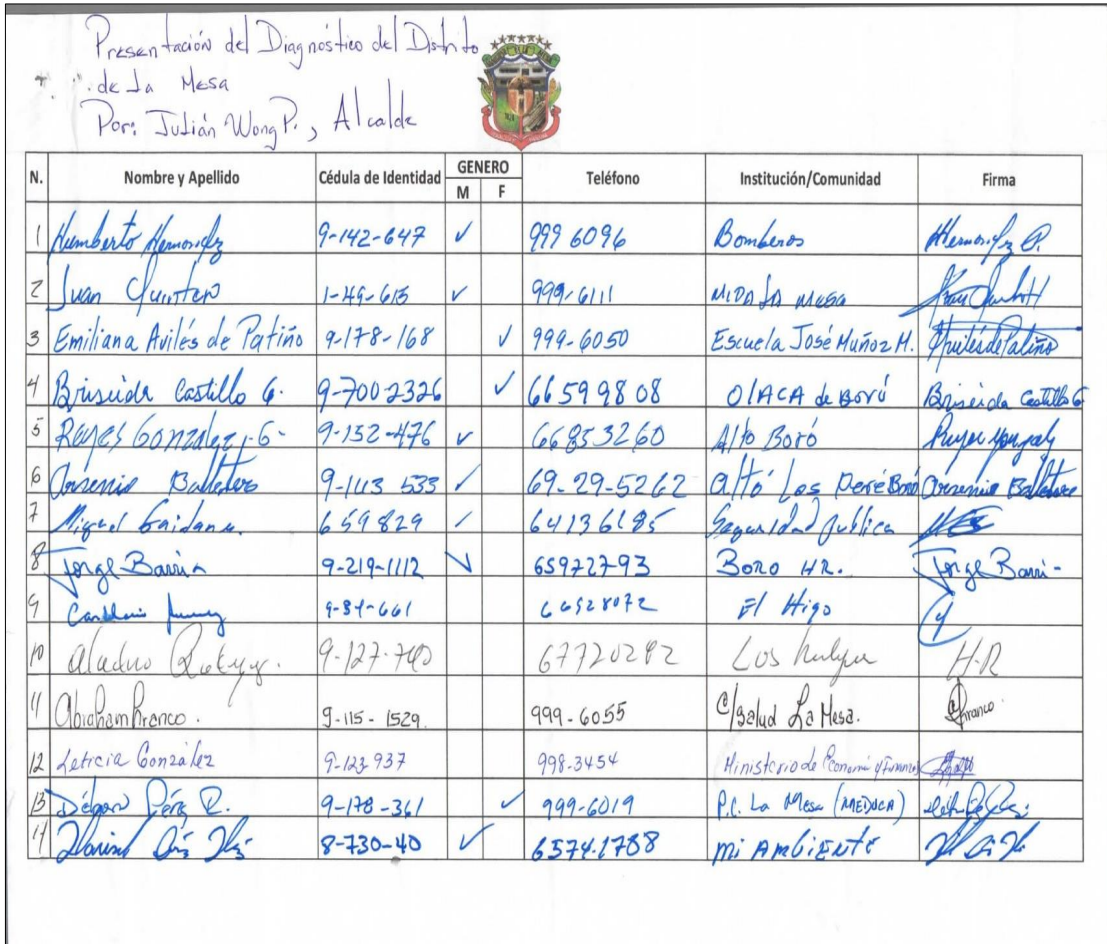 Presentación del Diagnóstico del Distrito
de La Mesa
Por: Julián Wong P., Alcalde
N. Nombre y Apellido Cédula de Identidad GENERO M F Teléfono Institución/Comunidad Firma
1 Humberto Hernández 9-142-647 ✓ 999 6096 Bomberos Hernández
2 Juan Quintero 1-49-615 ✓ 999-6111 MIDA La Mesa
3 Emiliana Avilés de Patiño 9-178-168 ✓ 999-6050 Escuela José Muñoz M. Avilés de Patiño
4 Briseida Castillo G. 9-700-2326 ✓ 6659 98 08 OIACA de Boró Briseida Castillo G
5 Reyes Gonzalez G. 9-152-476 ✓ 66853260 Alto Boró
6 Arsenio Ballestero 9-143 533 ✓ 69-29-5262 alto Los Boró Arsenio
7 Miguel 6 59 829 ✓ 64136185 Seguridad publica
8 Jorge Barria 9-219-1112 ✓ 659727-93 Boro HR. Jorge Barri-
9 9-84-661 66528072 El Higo
10 9-127-740 67720282 Los H.R
11 Abraham Franco. 9-115-1529. 999-6055 C/Salud La Mesa. Franco
12 Leticia González 9-123-937 998-3454 Ministerio de Economi y Finanzas
13 Pérez R. 9-178-361 ✓ 999-6019 P.C. La Mesa (MEDUCA)
14 8-730-40 ✓ 6574-1788 mi AMBIENTE